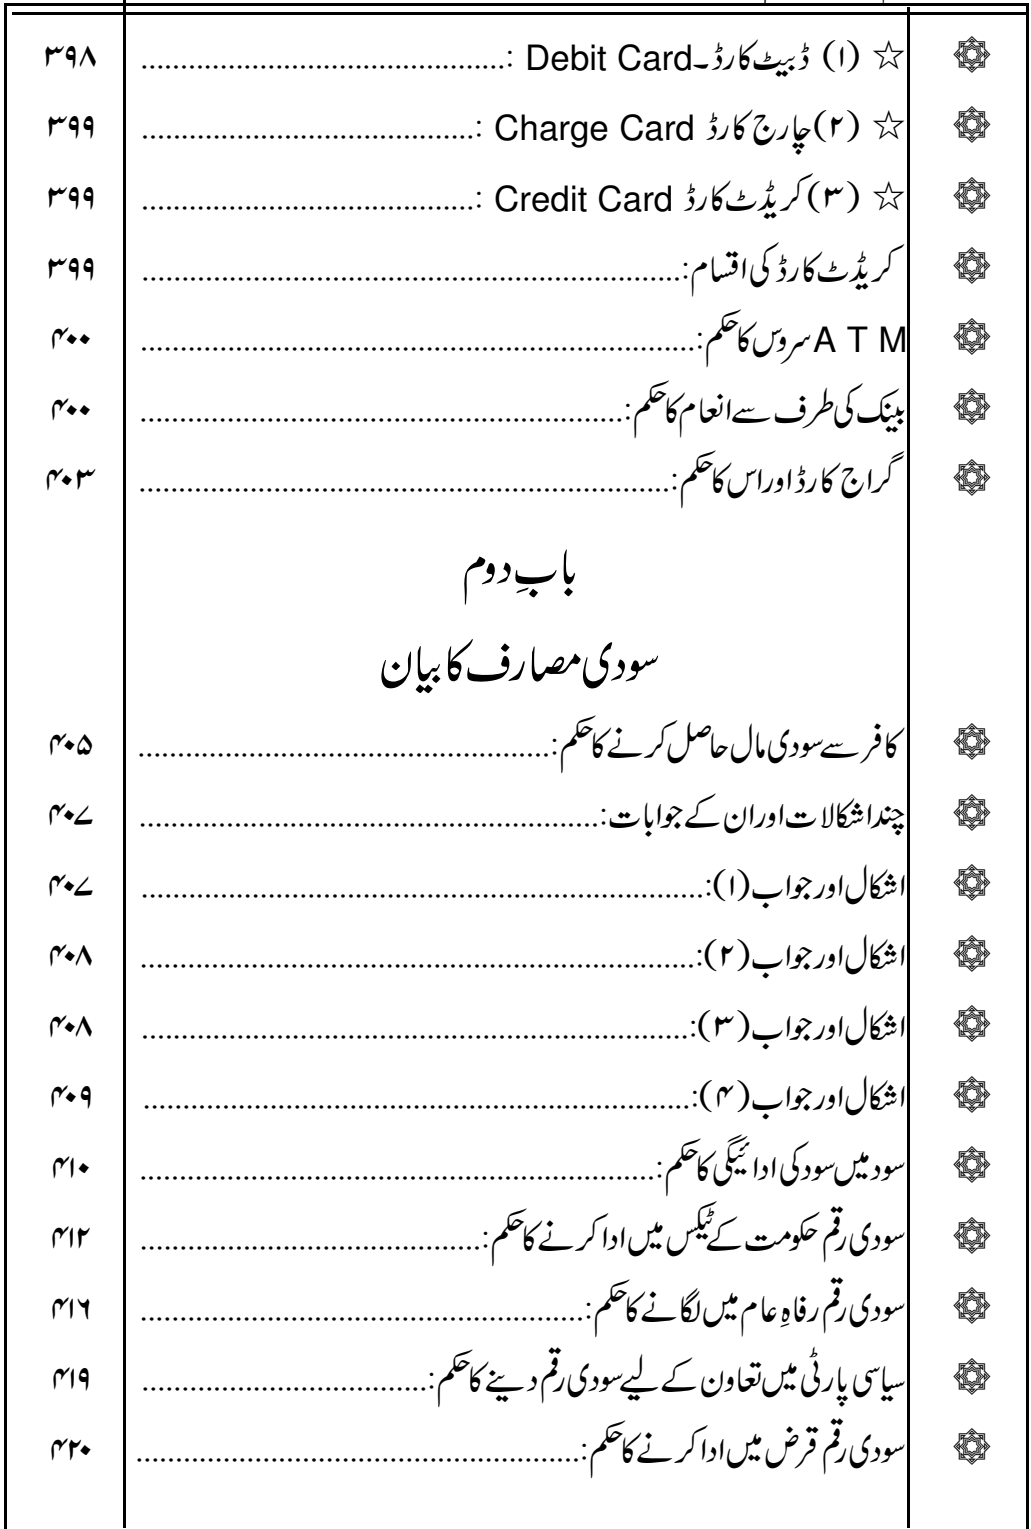 ☆ (۱) ڈبیٹ کارڈ۔Debit Card : ۳۹۸
☆ (۲) چارج کارڈ Charge Card : ۳۹۹
☆ (۳) کریڈٹ کارڈ Credit Card : ۳۹۹
کریڈٹ کارڈ کی اقسام: ۳۹۹
A T M سروس کا حکم: ۴۰۰
بینک کی طرف سے انعام کا حکم: ۴۰۰
گراج کارڈ اور اس کا حکم: ۴۰۳
بابِ دوم
سودی مصارف کا بیان
کافر سے سودی مال حاصل کرنے کا حکم: ۴۰۵
چند اشکالات اور ان کے جوابات: ۴۰۷
اشکال اور جواب (۱): ۴۰۷
اشکال اور جواب (۲): ۴۰۸
اشکال اور جواب (۳): ۴۰۸
اشکال اور جواب (۴): ۴۰۹
سود میں سود کی ادائیگی کا حکم: ۴۱۰
سودی رقم حکومت کے ٹیکس میں ادا کرنے کا حکم: ۴۱۲
سودی رقم رفاہِ عام میں لگانے کا حکم: ۴۱۶
سیاسی پارٹی میں تعاون کے لیے سودی رقم دینے کا حکم: ۴۱۹
سودی رقم قرض میں ادا کرنے کا حکم: ۴۲۰